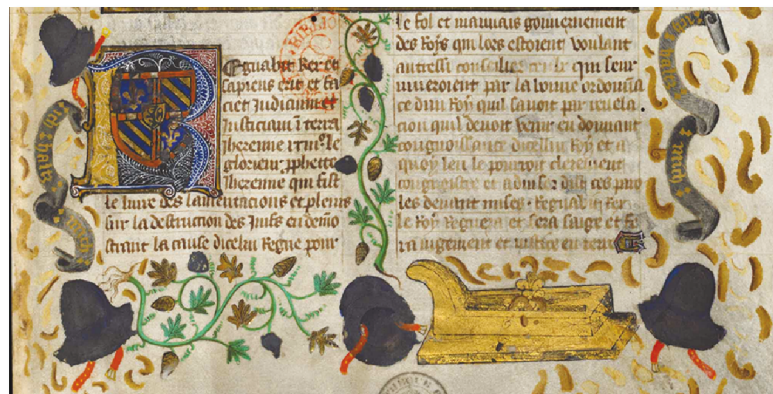 Regnabit Rex et
sapiens erit et fa
ciet Judicium et
Justiciam i terra
Jheremie le
glorieux pphete
Jheremie qui fist
le liure des lamentacions et pleurs
sur la destruction des Juifs en demo
strant la cause dicelui Regne pour
le fol et mauuais gouuernement
des Roys qui lors estoient voulant
autressi consolier ceulx qui seur
uiueroient par la bonne ordonna
ce dun Roy quil sauoit par reuela
cion quil deuoit venir en donnant
congnoissance dicellui Roy et a
quoy len le pourroit clerement
congnoistre et aduiser dist ces paro
les deuant mises. Regnabit Rex
le Roy Regnera et sera saige et fe
ra iugement et iustice en terre